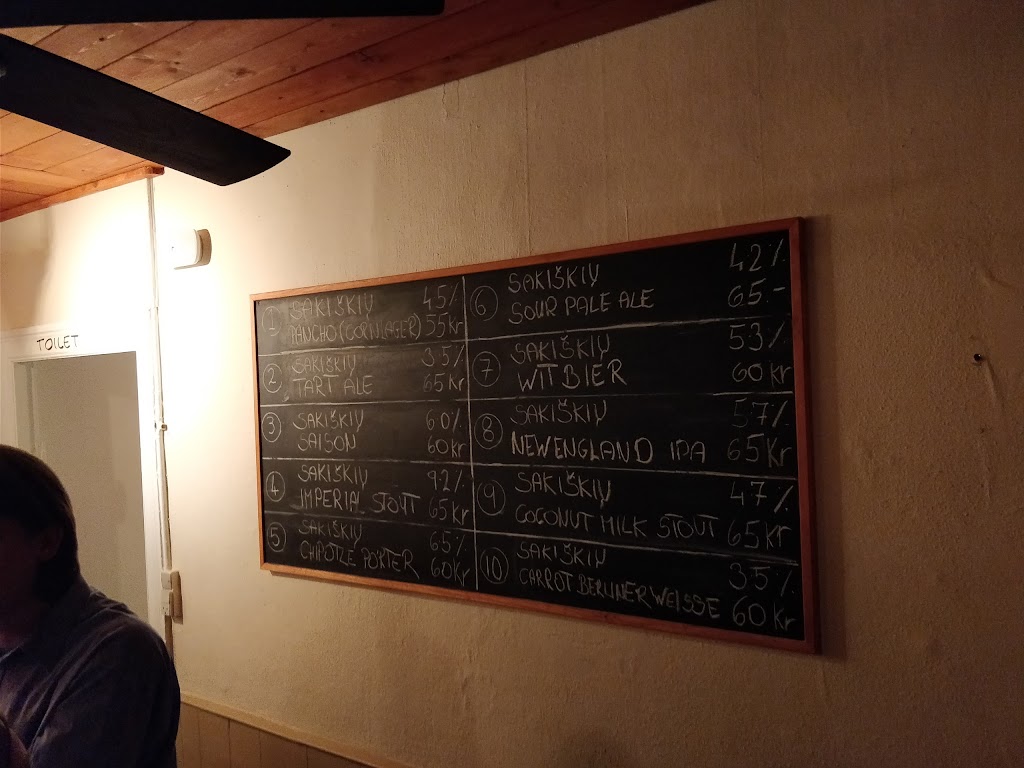 TOILET
1 SAKIŠKIŲ 4.5%
GAUCHO (CORN LAGER) 55kr
2 SAKIŠKIŲ 3.5%
TART ALE 65kr
3 SAKIŠKIŲ 6.0%
SAISON 60kr
4 SAKIŠKIŲ 9.2%
IMPERIAL STOUT 65kr
5 SAKIŠKIŲ 6.5%
CHIPOTLE PORTER 60kr
6 SAKIŠKIŲ 4.2%
SOUR PALE ALE 65.-
7 SAKIŠKIŲ 5.3%
WITBIER 60kr
8 SAKIŠKIŲ 5.7%
NEW ENGLAND IPA 65kr
9 SAKIŠKIŲ 4.7%
COCONUT MILK STOUT 65kr
10 SAKIŠKIŲ 3.5%
CARROT BERLINER WEISSE 60kr